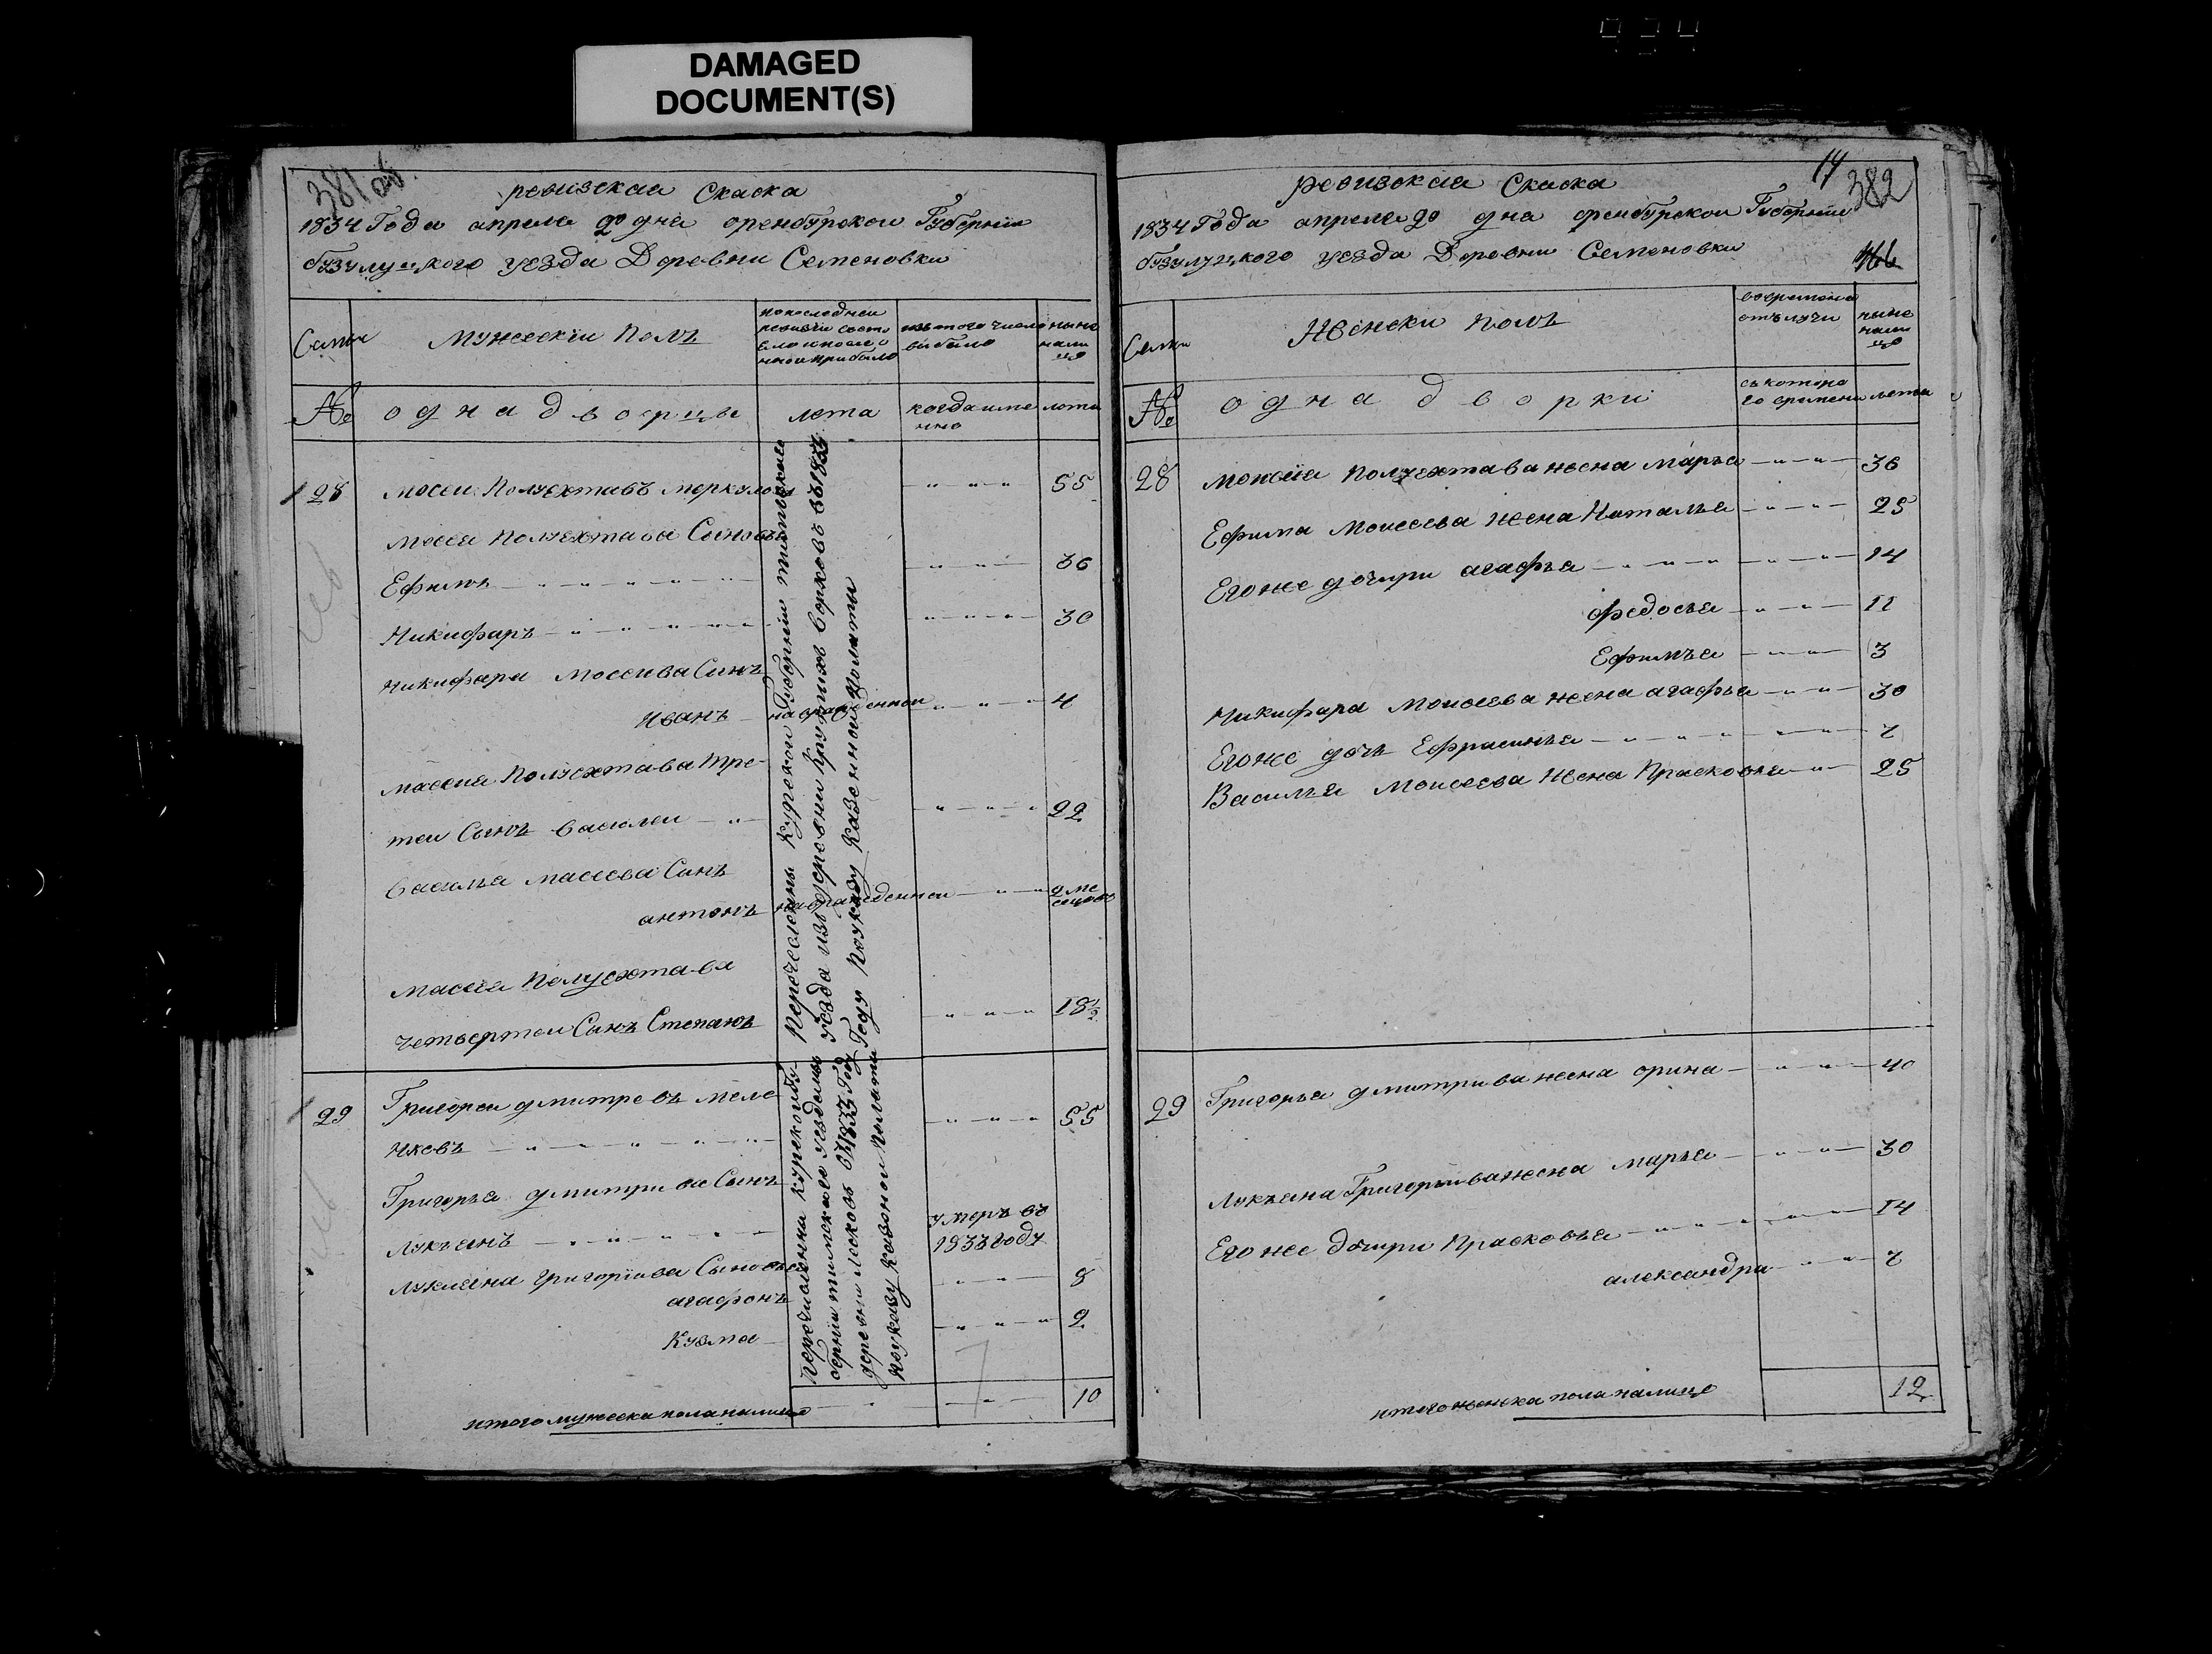 DAMAGED
DOCUMENT(S)
381 об.
ревизская Скаска
1834 Года апреля 20 дня оренбурской Губернии
бузулуцкого уезда Деревни Семеновки
Семьи
Мужескiи Полъ
попоследнеи
ревизiи состо
яло и после
нои прибыло
изътого числа
выбыло
ныне
нали
цо
№
однадворцы
лета
когда име
нно
лета
28
Мосеи Полуехтавъ меркуловъ
55
Мосея Полуехтава Сыновья
Ефимъ
36
Никифаръ
30
Никифара Мосеива Сынъ
Иванъ новарожденнои
4
Масеия Полуехтава тре-
теи Сынъ василеи
22
василья Масеева Сынъ
антонъ новарожденнои
2 ме
сецовъ
Масея Полуехтава
четвертои Сынъ Степанъ
18½
Перечеслены Курскои Губернiи тимскаго
уезда изъ деревни Крутихъ Верховъ въ 1832
Году Поуказу Казеннои Полаты
29
Григореи дмитревъ меле
нховъ
55
Григорья дмитрива Сынъ
Лукъянъ
умеръ въ
1833 году
Лукияна Григорiива Сыновья
агафонъ
8
Кузма
2
перечисленна курскои гу
бернiи тимскаго уезда изъ
деревни Лесковъ въ 1832 Году
поуказу Казенои полаты
итого мужеска пола налицо
10
14
382
ревизская Скаска
1834 Года апреля 20 дня оренбурскои Губернiи
бузулуцкого уезда Деревни Семеновки
Семьи
Женски полъ
вовременно
отълучи
ныне
нали
цо
№
однадворки
съкотора
го времени
лета
28
Мокеiя Полуехтава жена Марья
36
Ефима Моисеева жена Наталья
25
Егоже дочири агафья
14
федосья
11
Ефимъя
3
Никифара Моисеева жена агафья
30
Егоже дочь Ефрасинья
7
Василья Моисеева Жена Прасковья
25
29
Григорья дмитрива жена орина
40
Лукъяна Григорьива жена марья
30
Егоже дочири Прасковья
14
александра
7
итого женска пола налицо
12